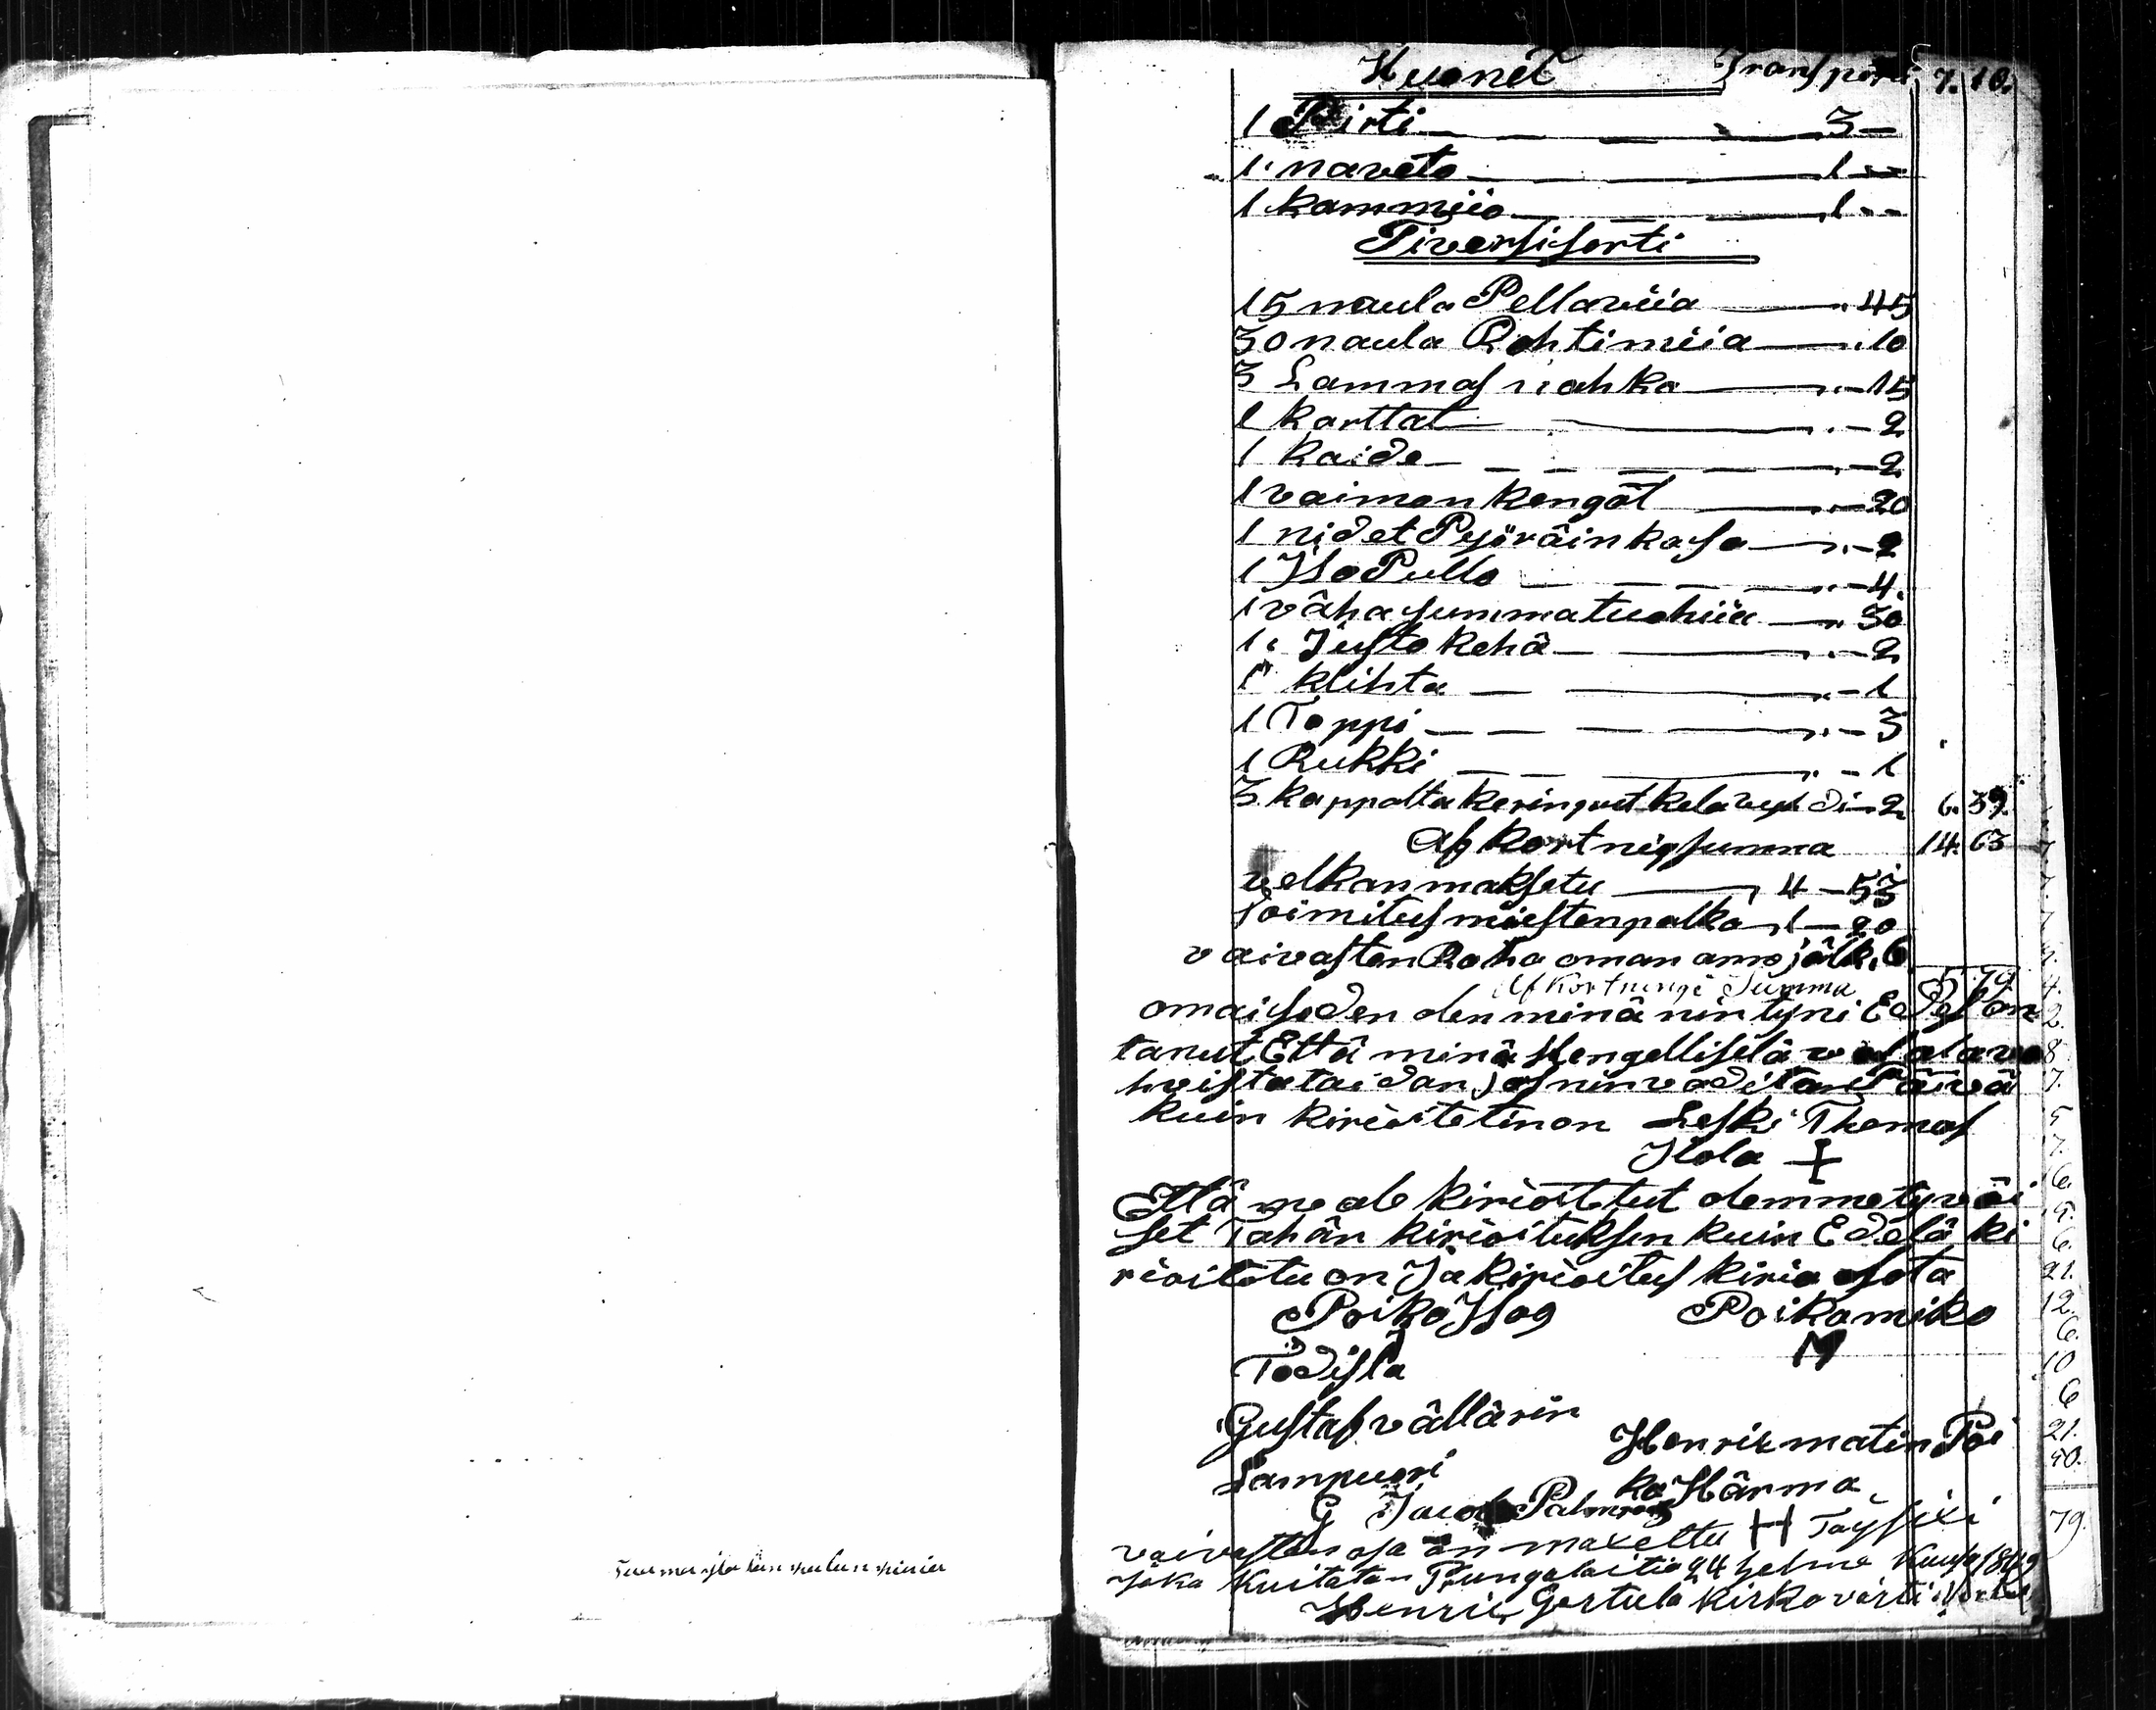 Huonet Transport 7. 10.
1 Pirti 3 —
1 naveto 1 --
1 kammiio 1 --
Tiversiserti
15 naula Pellaviia 45
30 naula Rohtimiia 10
3 Lammas nahka 15
1 karttat 2
1 kaide 2
1 vaimon kengät 20
1 nidet Pyöräinkasa 2
1 Iso Pullo 4.
1 väha summa tuohiia 30
1 Justo kehä 2
1 klihta 1
1 Toppi 3
1 Rukki 1
3 kappalta keringut 2 6. 39.
Afkortnigsumma 14. 63
velkan maksetu 4 — 53
Toimitus miestenpalko 1 — 20
vaivasten Raha oman jälk. 6
Afkortningi Summa 5 79
omaisuden olen minä nin tyni Edes an
tanut Että minä Hengellisela valala va
hvista taidan jos nin vaditan Päivä
kuin kirioitetin on Leski Thomas
Ilola
Että me ale kirioittetut olemme tyväi
set Tahän kirioituksen kuin Edelä ki
rioitettu on Ja kirioitus kiria osota
Poika Isag Poikamiko
M
Todista
Gustaf vällärin
Henrik matin Poi
Lampuori
ka Härma
G Jacob Palmroos
vaivasten osa on maxettu H Täysixi
Joka kuitatan Pungalaitio 24 helme kuusa 1849
Henric Gertula kirkovärti